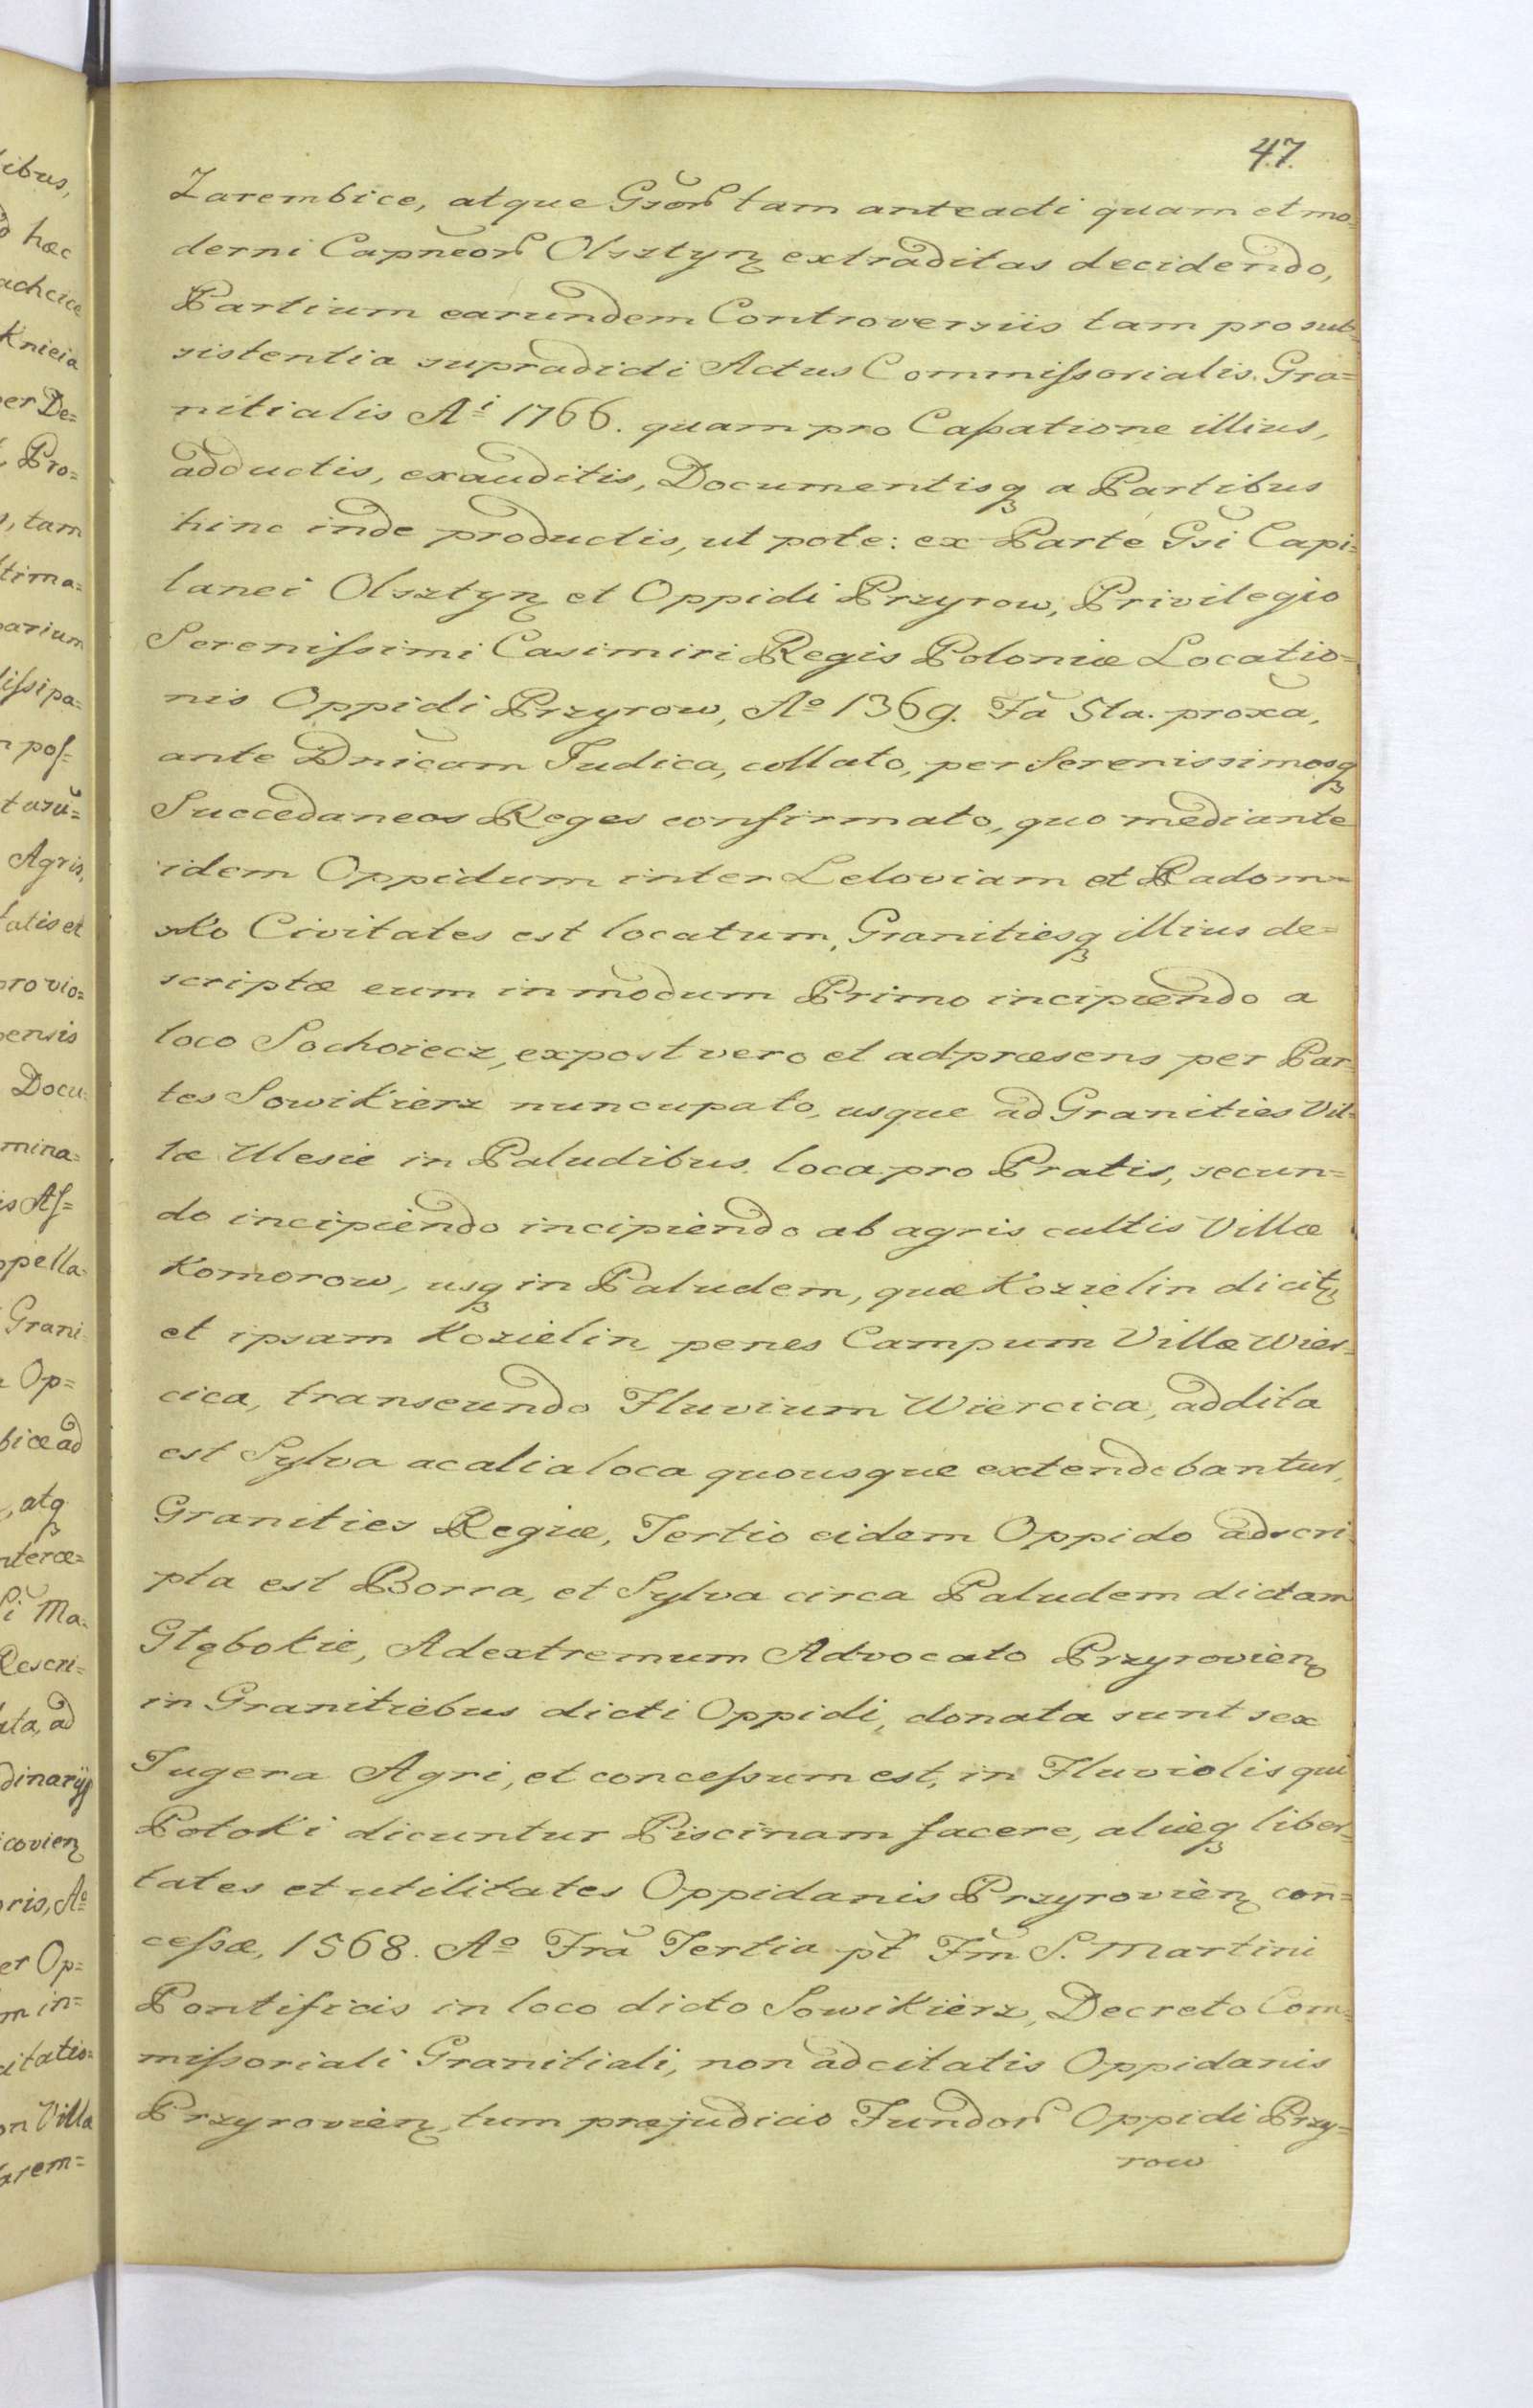 47.
Zarembice, atque Gsör tam anteacti quam et mo=
derni Capneor Olsztyn extraditas decidendo,
Partium earundem Controversiis tam pro sub=
sistentia supradicti Actus Commissorialis Gra=
nitialis Ai 1766. quam pro Cassatione illius,
adductis, exauditis, Documentisq a Partibus
hinc inde productis, ut pote: ex Parte Gsi Capi=
tanei Olsztyn et Oppidi Przyrow, Privilegio
Serenissimi Casimiri Regis Poloniæ Locatio=
nis Oppidi Przyrow, Ao 1369. Fa 5ta. proxa,
ante Dnicam Judica, collato, per Serenissimosq
Succedaneos Reges confirmato, quo mediante
idem Oppidum inter Leloviam et Radom=
sko Civitates est locatum, Granitiesq illius de=
scriptæ eum in modum Primo incipiendo a
loco Sochoiecz, expost vero et ad præsens per Par=
tes Sowikierz nuncupato, usque ad Granities Vil=
læ Ulesie in Paludibus loca pro Pratis, secun=
do incipiendo incipiendo ab agris cultis Villæ
Komorow, usq in Paludem, quæ Kozielin dicit
et ipsam Kozielin, penes Campum Villæ Wier=
cica, transeundo Fluvium Wiercica, addita
est Sylva ac alia loca quousque extendebantur,
Granities Regiæ, Tertio eidem Oppido adscri=
pta est Borra, et Sylva circa Paludem dictam
Głębokie, Adextremum Advocato Przyrovien
in Granitiebus dicti Oppidi, donata sunt sex
Jugera Agri, et concessum est, in Fluviolis qui
Potoki dicuntur Piscinam facere, aliæq liber=
tates et utilitates Oppidanis Przyrovien con=
cessæ, 1568. Ao Fra Tertia pt Fm S. Martini
Pontificis in loco dicto Sowikierz, Decreto Com=
missoriali Granitiali, non adcitatis Oppidanis
Przyrovien, tum prejudicio Fundor Oppidi Przy=
row